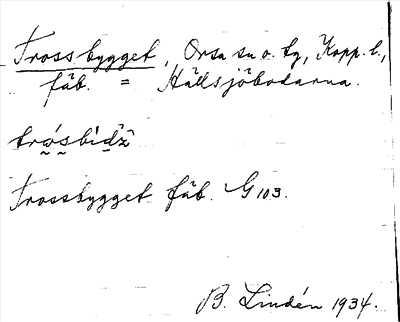 Trossbygget, Orsa sn o. tg, Kopp. l.,
fäb. = Hällsjöbodarna.
Trossbygget fäb. G 103.
B. Lindén 1934.